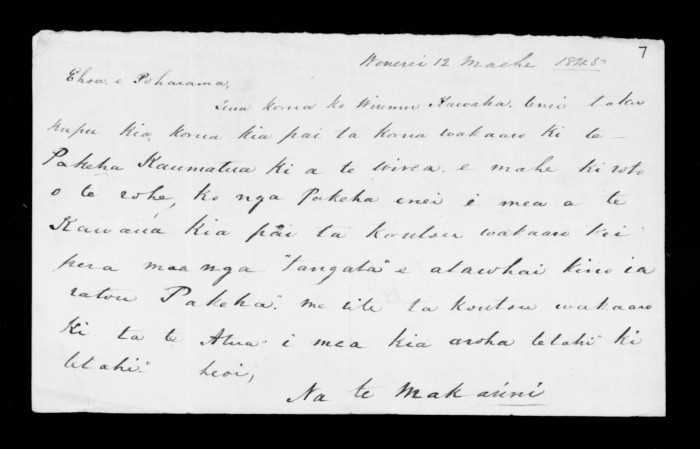 7
Wenerei 12 Maehe 1845
Ehoa. e Poharama,
Tena korua ko Wiremu Kawaha. Enei taku
kupu kia korua kia pai ta korua wakaaro ki te
Pakeha Kaumatua ki a te wirea. e mahe ki roto
o te rohe, ko nga Pakeha enei i mea a te
Kawana kia pai ta koutou wakaaro kei
pera maa nga "tangata" e atawhai kino ia
ratou Pakeha". me rite ta koutou wakaaro
ki ta te Atua - i mea kia aroha tetahi" ki
tetahi". heoi,
Na te Makarini